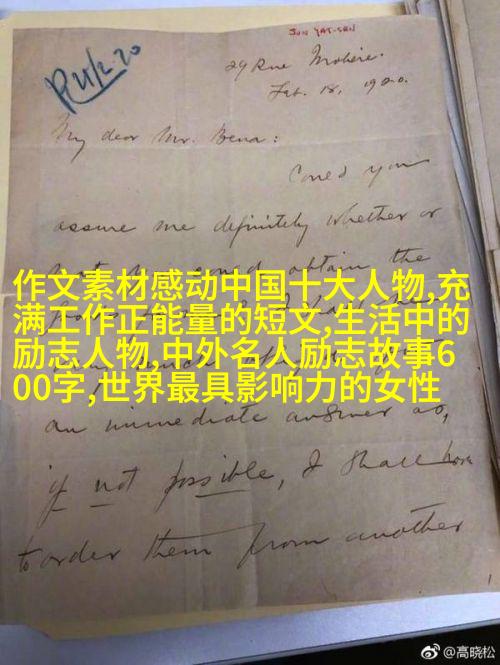 SUN YAT-SEN
R 21/2.20
29 Rue Molière.
Feb. 18, 1920.
My dear Mr. Bena:
Could you
assure me definitely whether or
obtain the
作文素材感动中国十大人物,充
满工作正能量的短文,生活中的
励志人物,中外名人励志故事6
00字,世界最具影响力的女性
an immediate answer as,
if not possible, I shall have
to order them from another
@高晓松